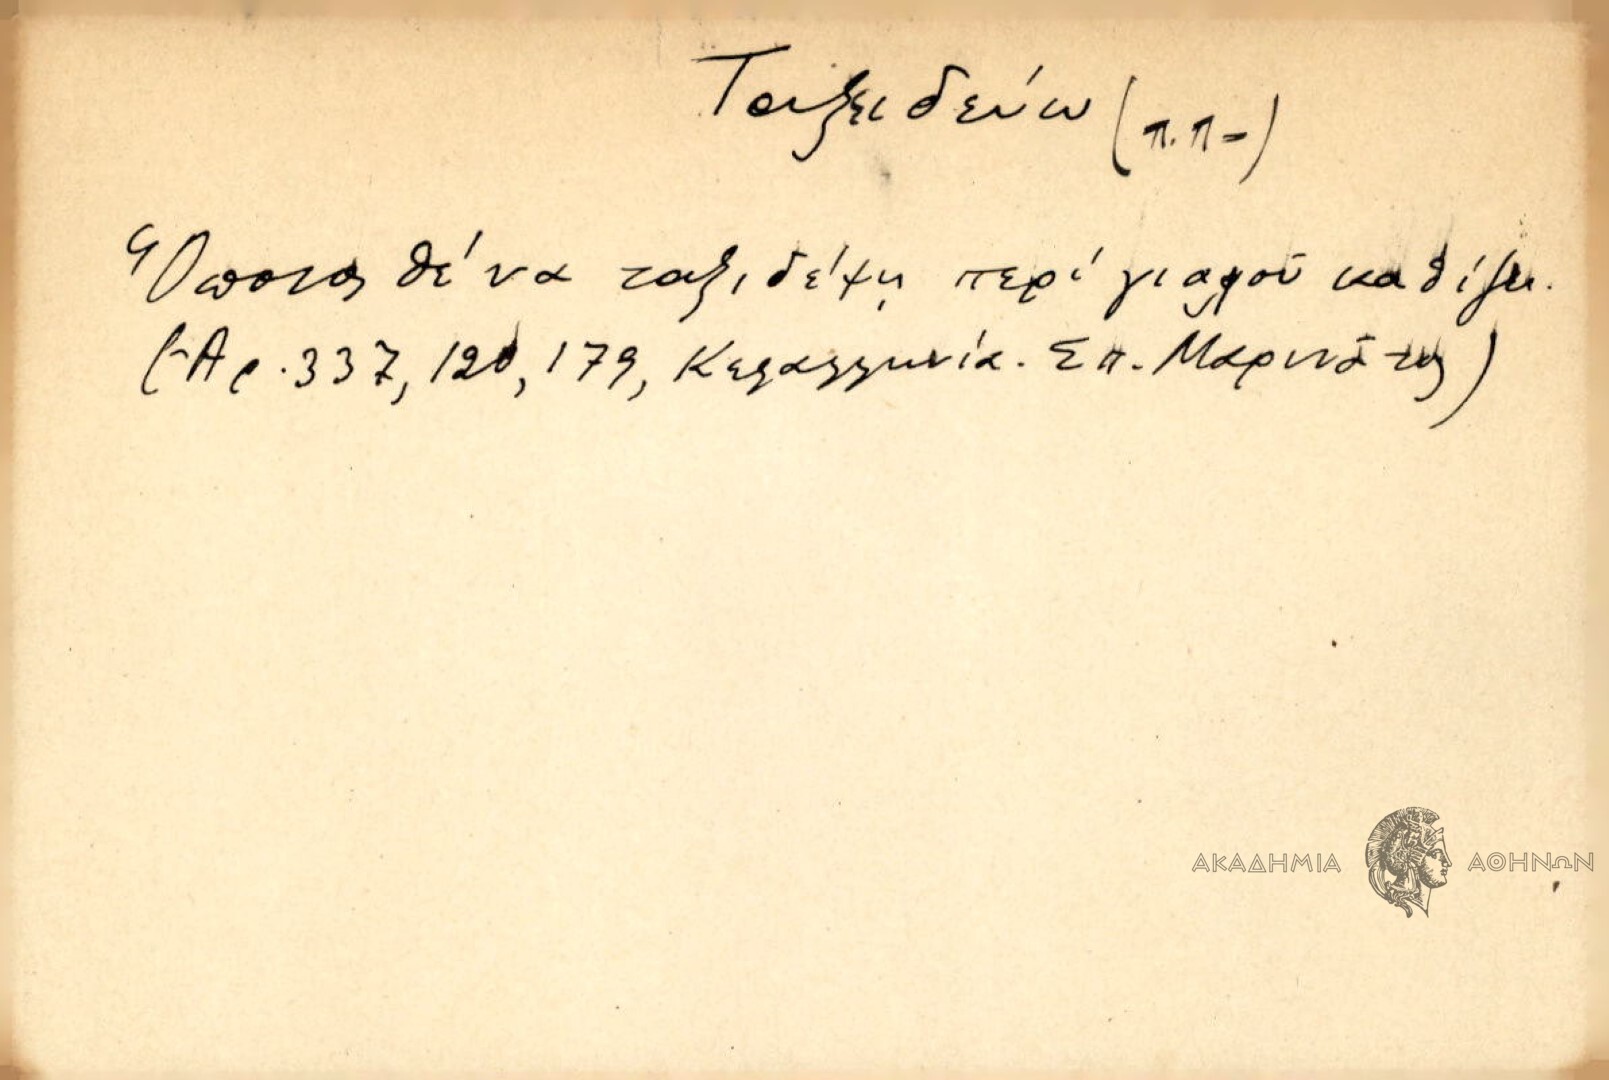 Ταξειδεύω (π.π=)
Ὅποιος θέ να ταξιδέψῃ περί γιαλοῦ καθίζει.
(Ἀρ. 337, 120, 179, Κεφαλληνία. Σπ. Μαρινᾶτος)
ΑΚΑΔΗΜΙΑ ΑΘΗΝΩΝ